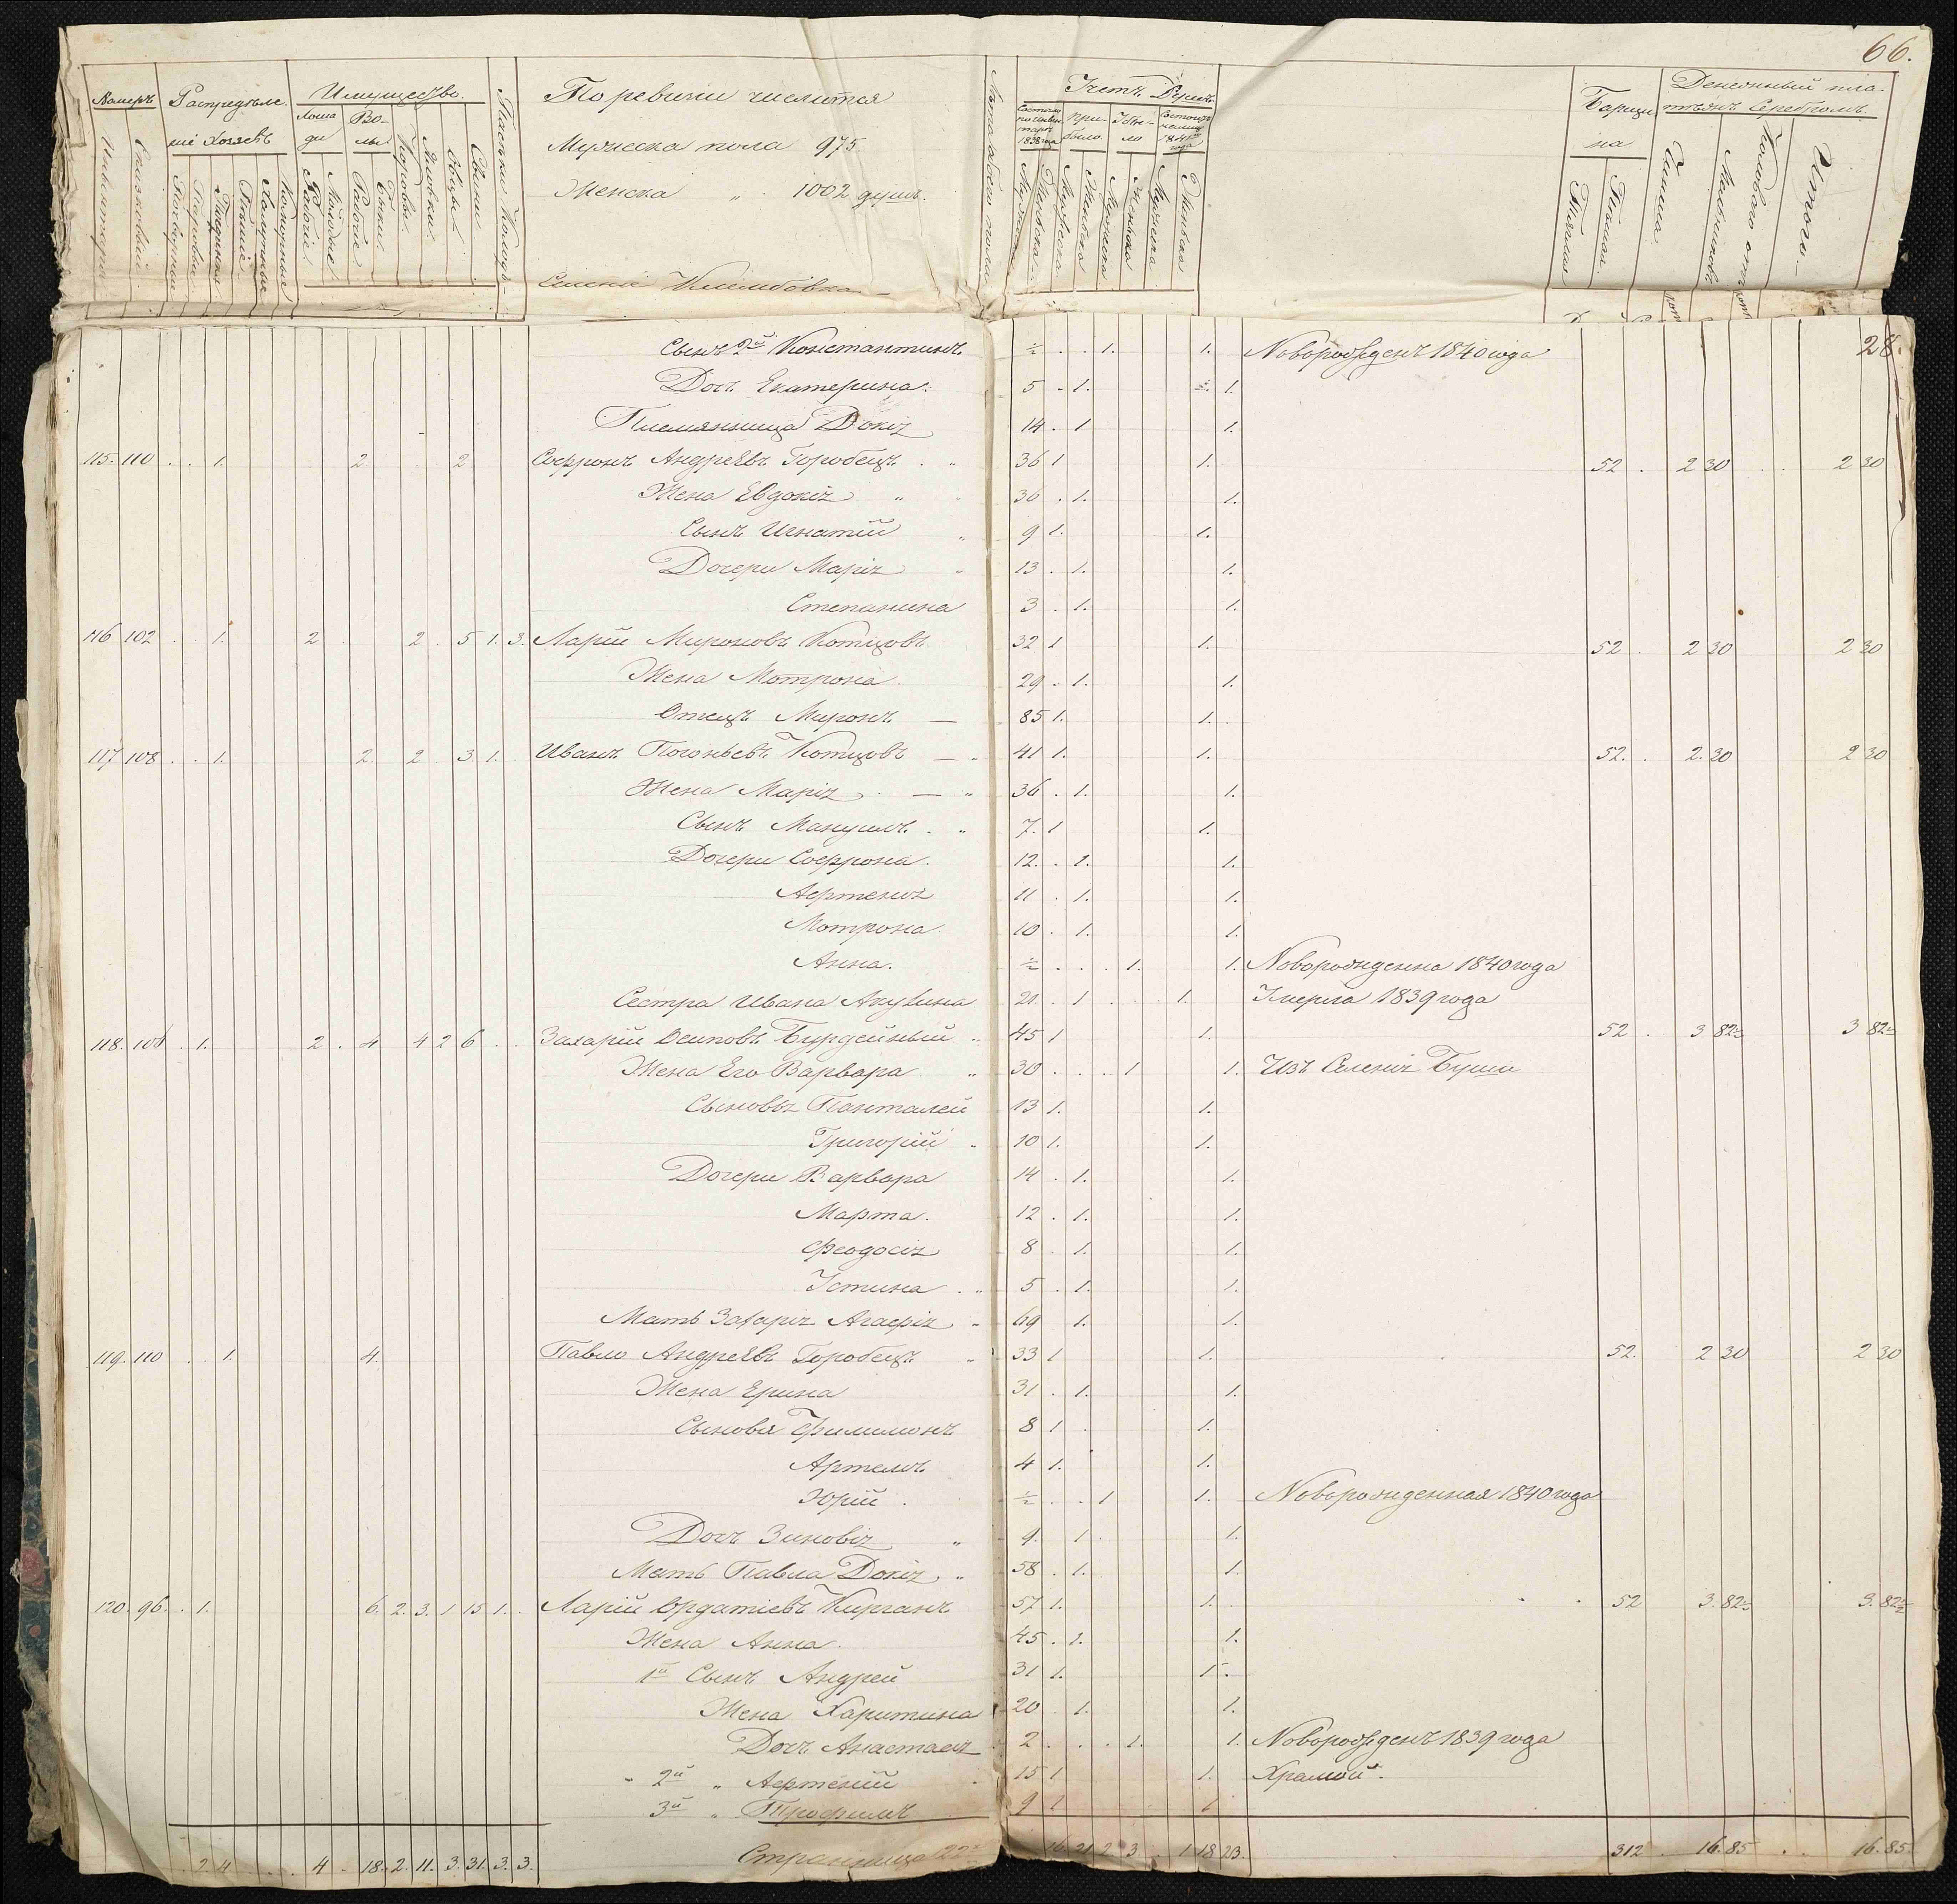 66.
Номеръ Распредѣле- Имущество. Пасѣки Колодъ Торевичи числится Лѣта каждого пола Учетъ Душъ Барщина Денежный пла-
ніе Хозяевъ Лоша- Во- Состояло при- Убы- Состоитъ тежъ Серебромъ.
ди лы 1838 года было. ло 1841 года
Инвентарный Списковый Тягловые Рабочіе Молодые Рабочіе Бычки Коровы Яловки Овцы Свиньи
Мужеска пола 975.
Женска „ 1002 душъ.
Мужеска Женска Мужеска Женска Мужеска Женска Мужеска Женска Тяглая Пѣшая Чинша Итого
28.
Сынъ 2й Константинъ ½ . . 1. 1. Новорожденъ 1840 года
Дочь Екатерина. 5 . 1. 1.
Племянница Докія 14 . 1 1.
115. 110 . . 1. 2 . . 2 Софронъ Андреевъ Горобецъ . „ 36 1 1. 52 . 2 30 . . 2 30
Жена Евдокія „ 36 . 1. 1.
Сынъ Игнатій „ 9 1. 1.
Дочери Марія „ 13 . 1. 1.
Степанина 3 . 1. 1.
116 102 . . 1. 2 . 2 . 5 1. 3. Ларій Мироновъ Котцовъ 32 1 1. 52 . 2 30 2 30
Жена Мотрона. 29 . 1. 1.
Отецъ Миронъ — 85 1. 1.
117 108 . . 1. 2. 2 3. 1. Иванъ Котцовъ — „ 41 1. 1. 52. . 2. 30 2 30
Жена Марія . — „ 36 . 1. 1.
Сынъ Мануилъ . „ 7. 1 1.
Дочери Софрона. 12. . 1. 1.
Афтенія 11 . 1. 1.
Мотрона 10 . 1. 1.
Анна. ½ . . . 1. 1. Новорожденна 1840 года
Сестра Ивана Акулина 21. . 1 . . . 1. Умерла 1839 года
118. . 1. 2 . 4 4 2 6 . . Захарій Осиповъ Бурдейный „ 45 1 1. 52 . 3 82½ 3 82½
Жена Его Варвара „ 30 . . . 1 1. Изъ Селенія Буши
Сыновья Панталей 13 1. 1.
Григорій „ 10 1. 1.
Дочери Варвара 14 . 1. 1.
Марта. 12 . 1. 1.
Феодосія 8 . 1. 1.
Устина . „ 5 . 1. 1.
Мать Захарія Агафія „ 69 1. 1.
119. 110 . . 1. 4 Павло Андреевъ Горобецъ „ 33 1 1. 52. 2 30 2 30
Жена Ерина 31 . 1. 1.
Сыновья Филимонъ 8 1 . 1.
Артемъ. 4 1. 1.
Юрій . ½ . . 1 1. Новорожденная 1840 года
Дочь Зиновія „ 9. 1. 1.
Мать Павла Докія „ 58 . 1. 1.
120. 96. . 1. 6. 2. 3. 1 15 1. . Ларій Курганъ 57 1. 1. 52 3. 82½ 3. 82½
Жена Анна. 45 . 1. 1.
1й Сынъ Андрей 31 1. 1.
Жена Харитина 20 1. 1.
Дочь Анастасія 2 . . . 1. 1. Новорожденъ 1839 года
„ 2й „ Афтеній 15 1 1. Храмой.
3й „ Трофимъ 9 1 1
. 2 4 . . . 4 . 18. 2. 11. 3. 31. 3. 3. Страница 16. 21 2 3 . 1 18 23. 312 . 16. 85 . . 16. 85.